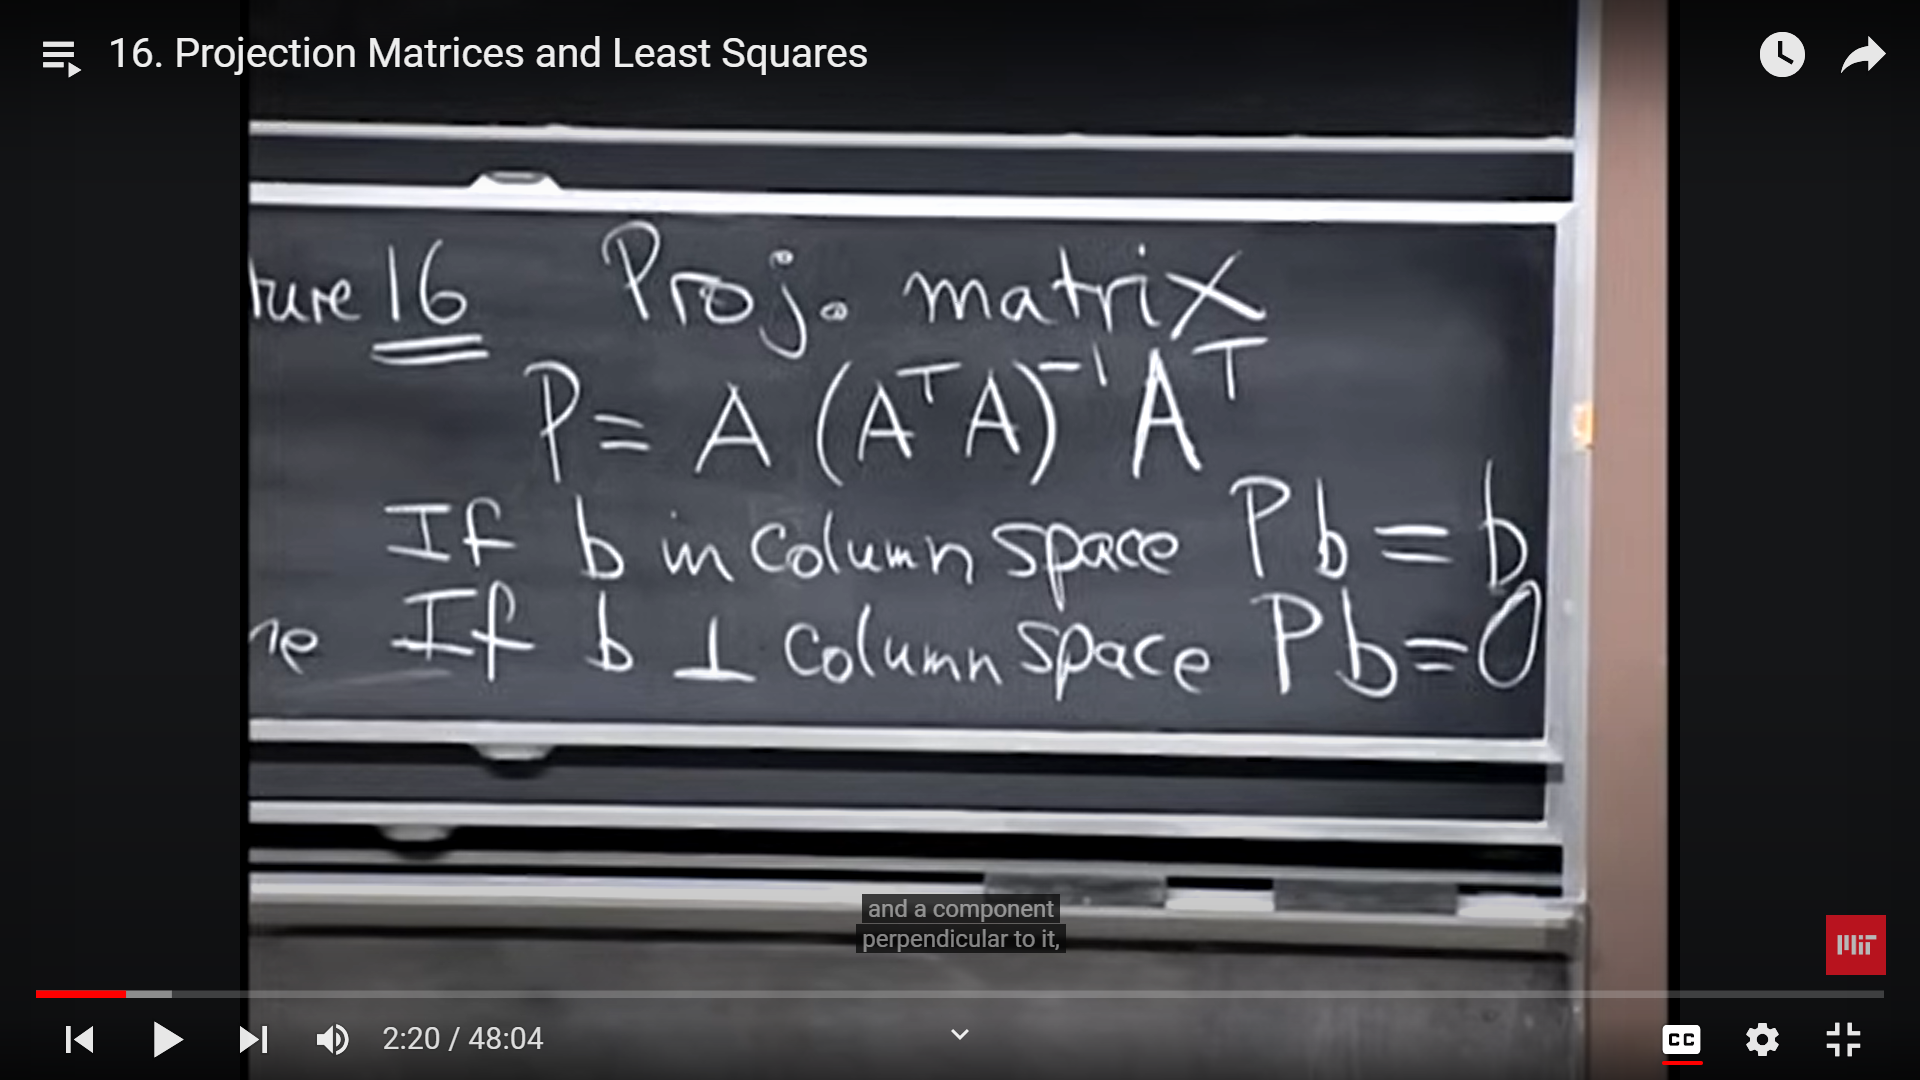 16. Projection Matrices and Least Squares
ture 16 Proj. matrix
P = A (AᵀA)⁻¹ Aᵀ
If b in column space Pb = b
ne If b ⊥ column space Pb = 0
and a component
perpendicular to it,
MIT
2:20 / 48:04
CC